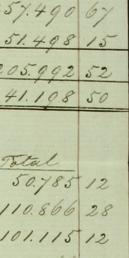 57.490 67
51.498 15
205.992 52
41.198 50
Total
50.785 12
110.866 28
101.115 12